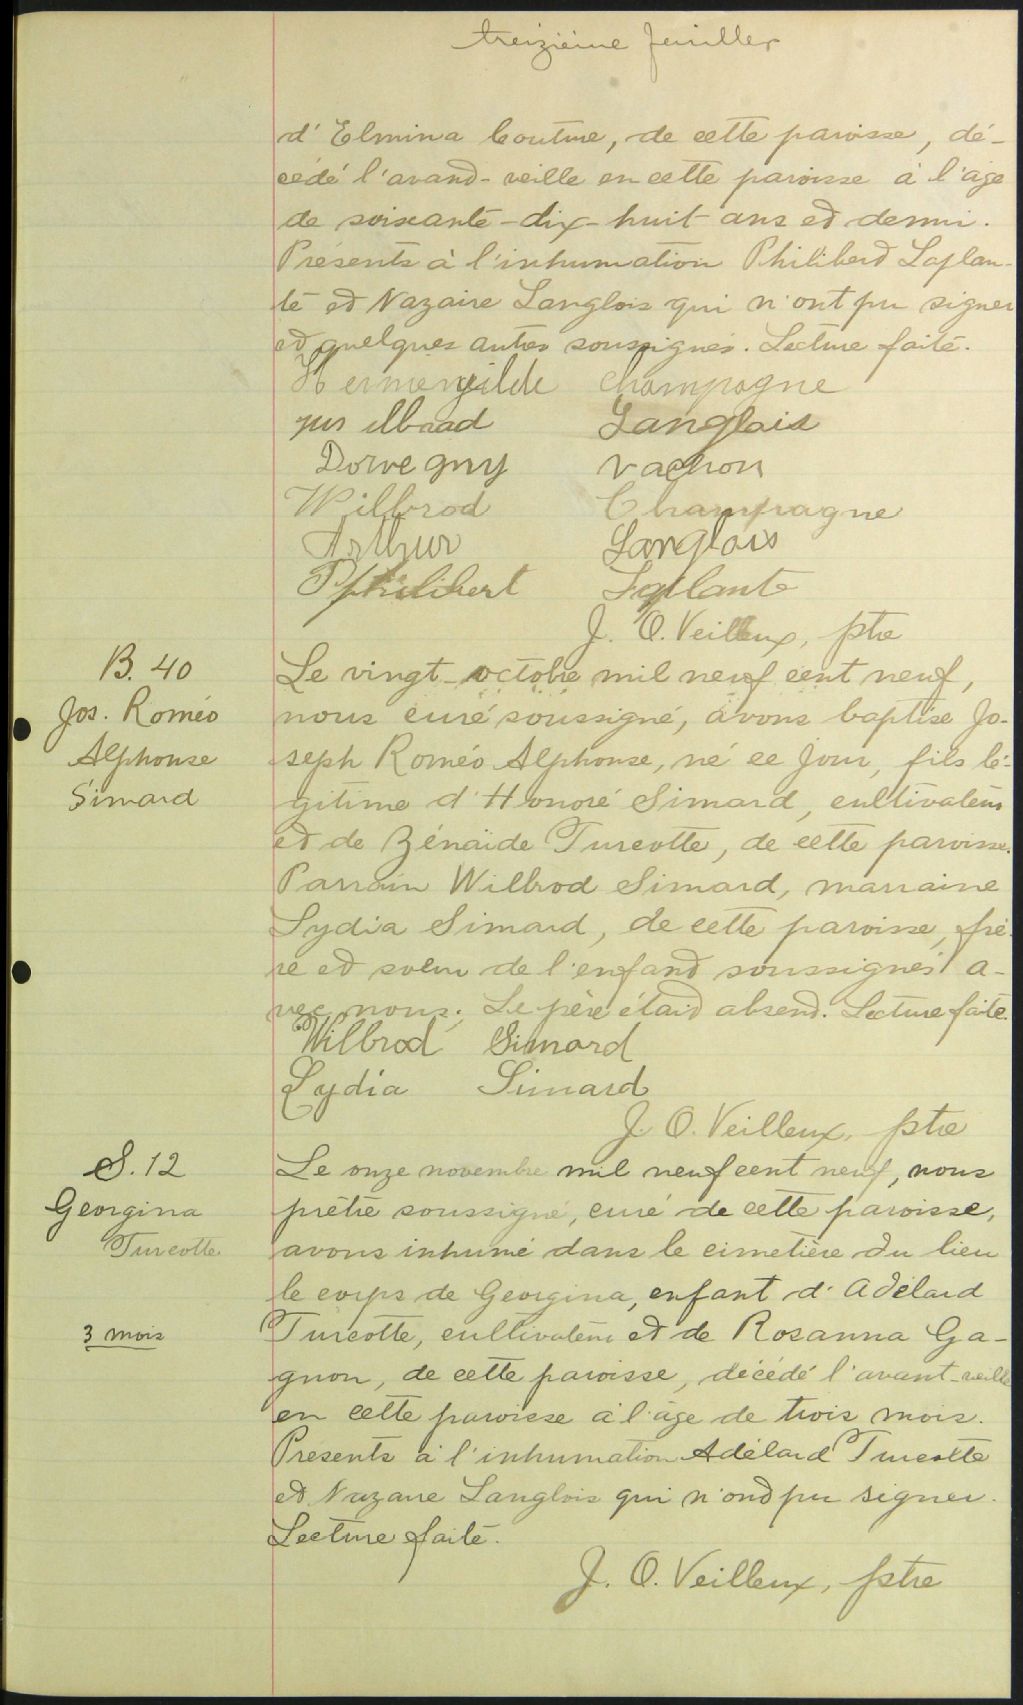 treizième feuillet
d' Elmina Couture, de cette paroisse, dé-
cédé l'avand-veille en cette paroisse à l'âge
de soixante-dix-huit ans et demi.
Présents à l'inhumation Philiberd Laplan-
te et Nazaire Langlois qui n'ont pu signer
et quelques autres soussignés. Lecture faite.
Hermenegilde Champagne
Langlais
Dorvegny Vachon
Wilbrod Champagne
Arthur Langlois
Pphilibert Laplante
J. O. Veilleux, ptre
B. 40
Jos. Roméo
Alphonse
Simard
Le vingt octobre mil neuf cent neuf,
nous curé soussigné, avons baptisé Jo-
seph Roméo Alphonse, né ce jour, fils lé-
gitime d'Honoré Simard, cultivateur
et de Zénaïde Turcotte, de cette paroisse.
Parrain Wilbrod Simard, marraine
Lydia Simard, de cette paroisse, frè-
re et soeur de l'enfand soussignés a-
vec nous. Le père étaid absend. Lecture faite.
Wilbrod Simard
Lydia Simard
J. O. Veilleux, ptre
S. 12
Georgina
Turcotte
3 mois
Le onze novembre mil neuf cent neuf, nous
prêtre soussigné, curé de cette paroisse,
avons inhumé dans le cimetière du lieu
le corps de Georgina, enfant d'Adélard
Turcotte, cultivateur et de Rosanna Ga-
gnon, de cette paroisse, décédé l'avant-veille
en cette paroisse à l'âge de trois mois.
Présents à l'inhumation Adélard Turcotte
et Nazaire Langlois qui n'ond pu signer.
Lecture faite.
J. O. Veilleux, ptre